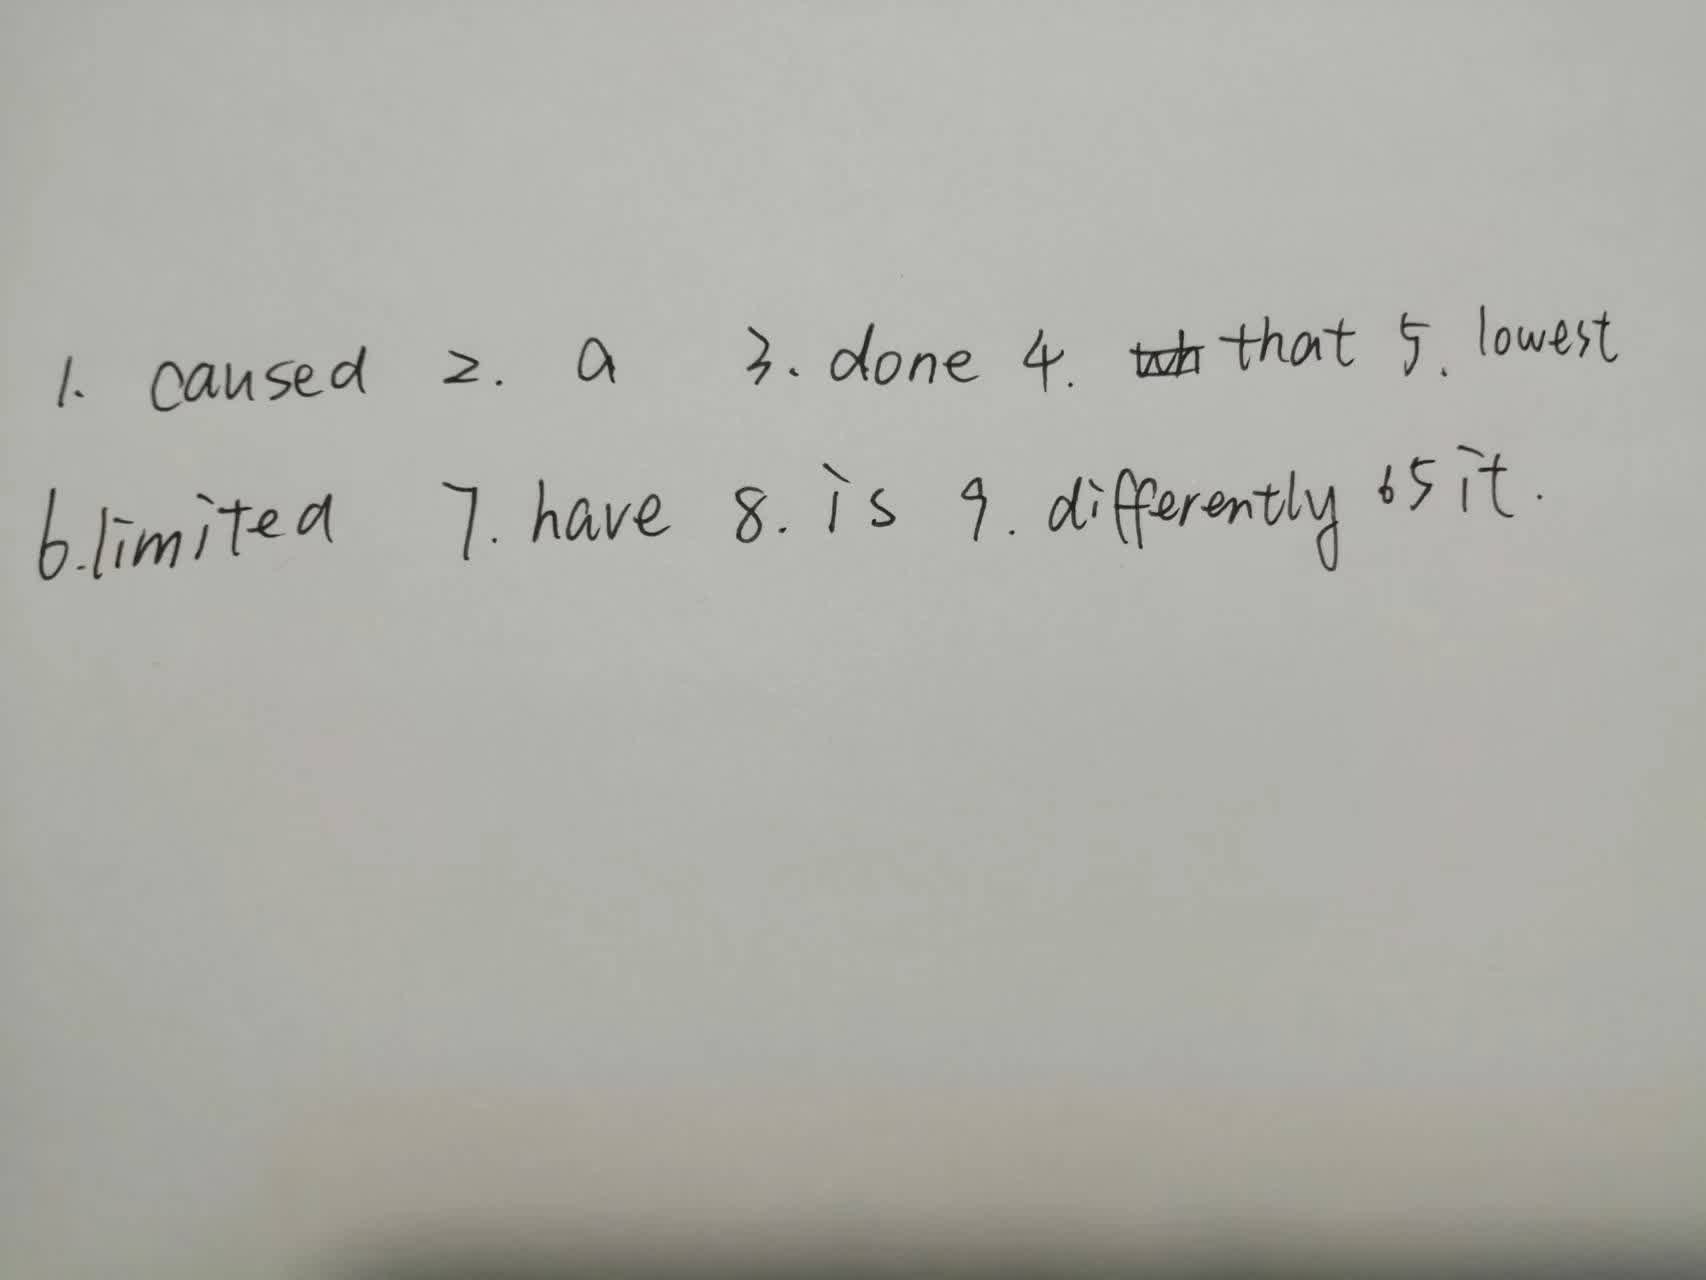 1. caused 2. a 3. done 4. that 5. lowest
6. limited 7. have 8. is 9. differently 65 it.